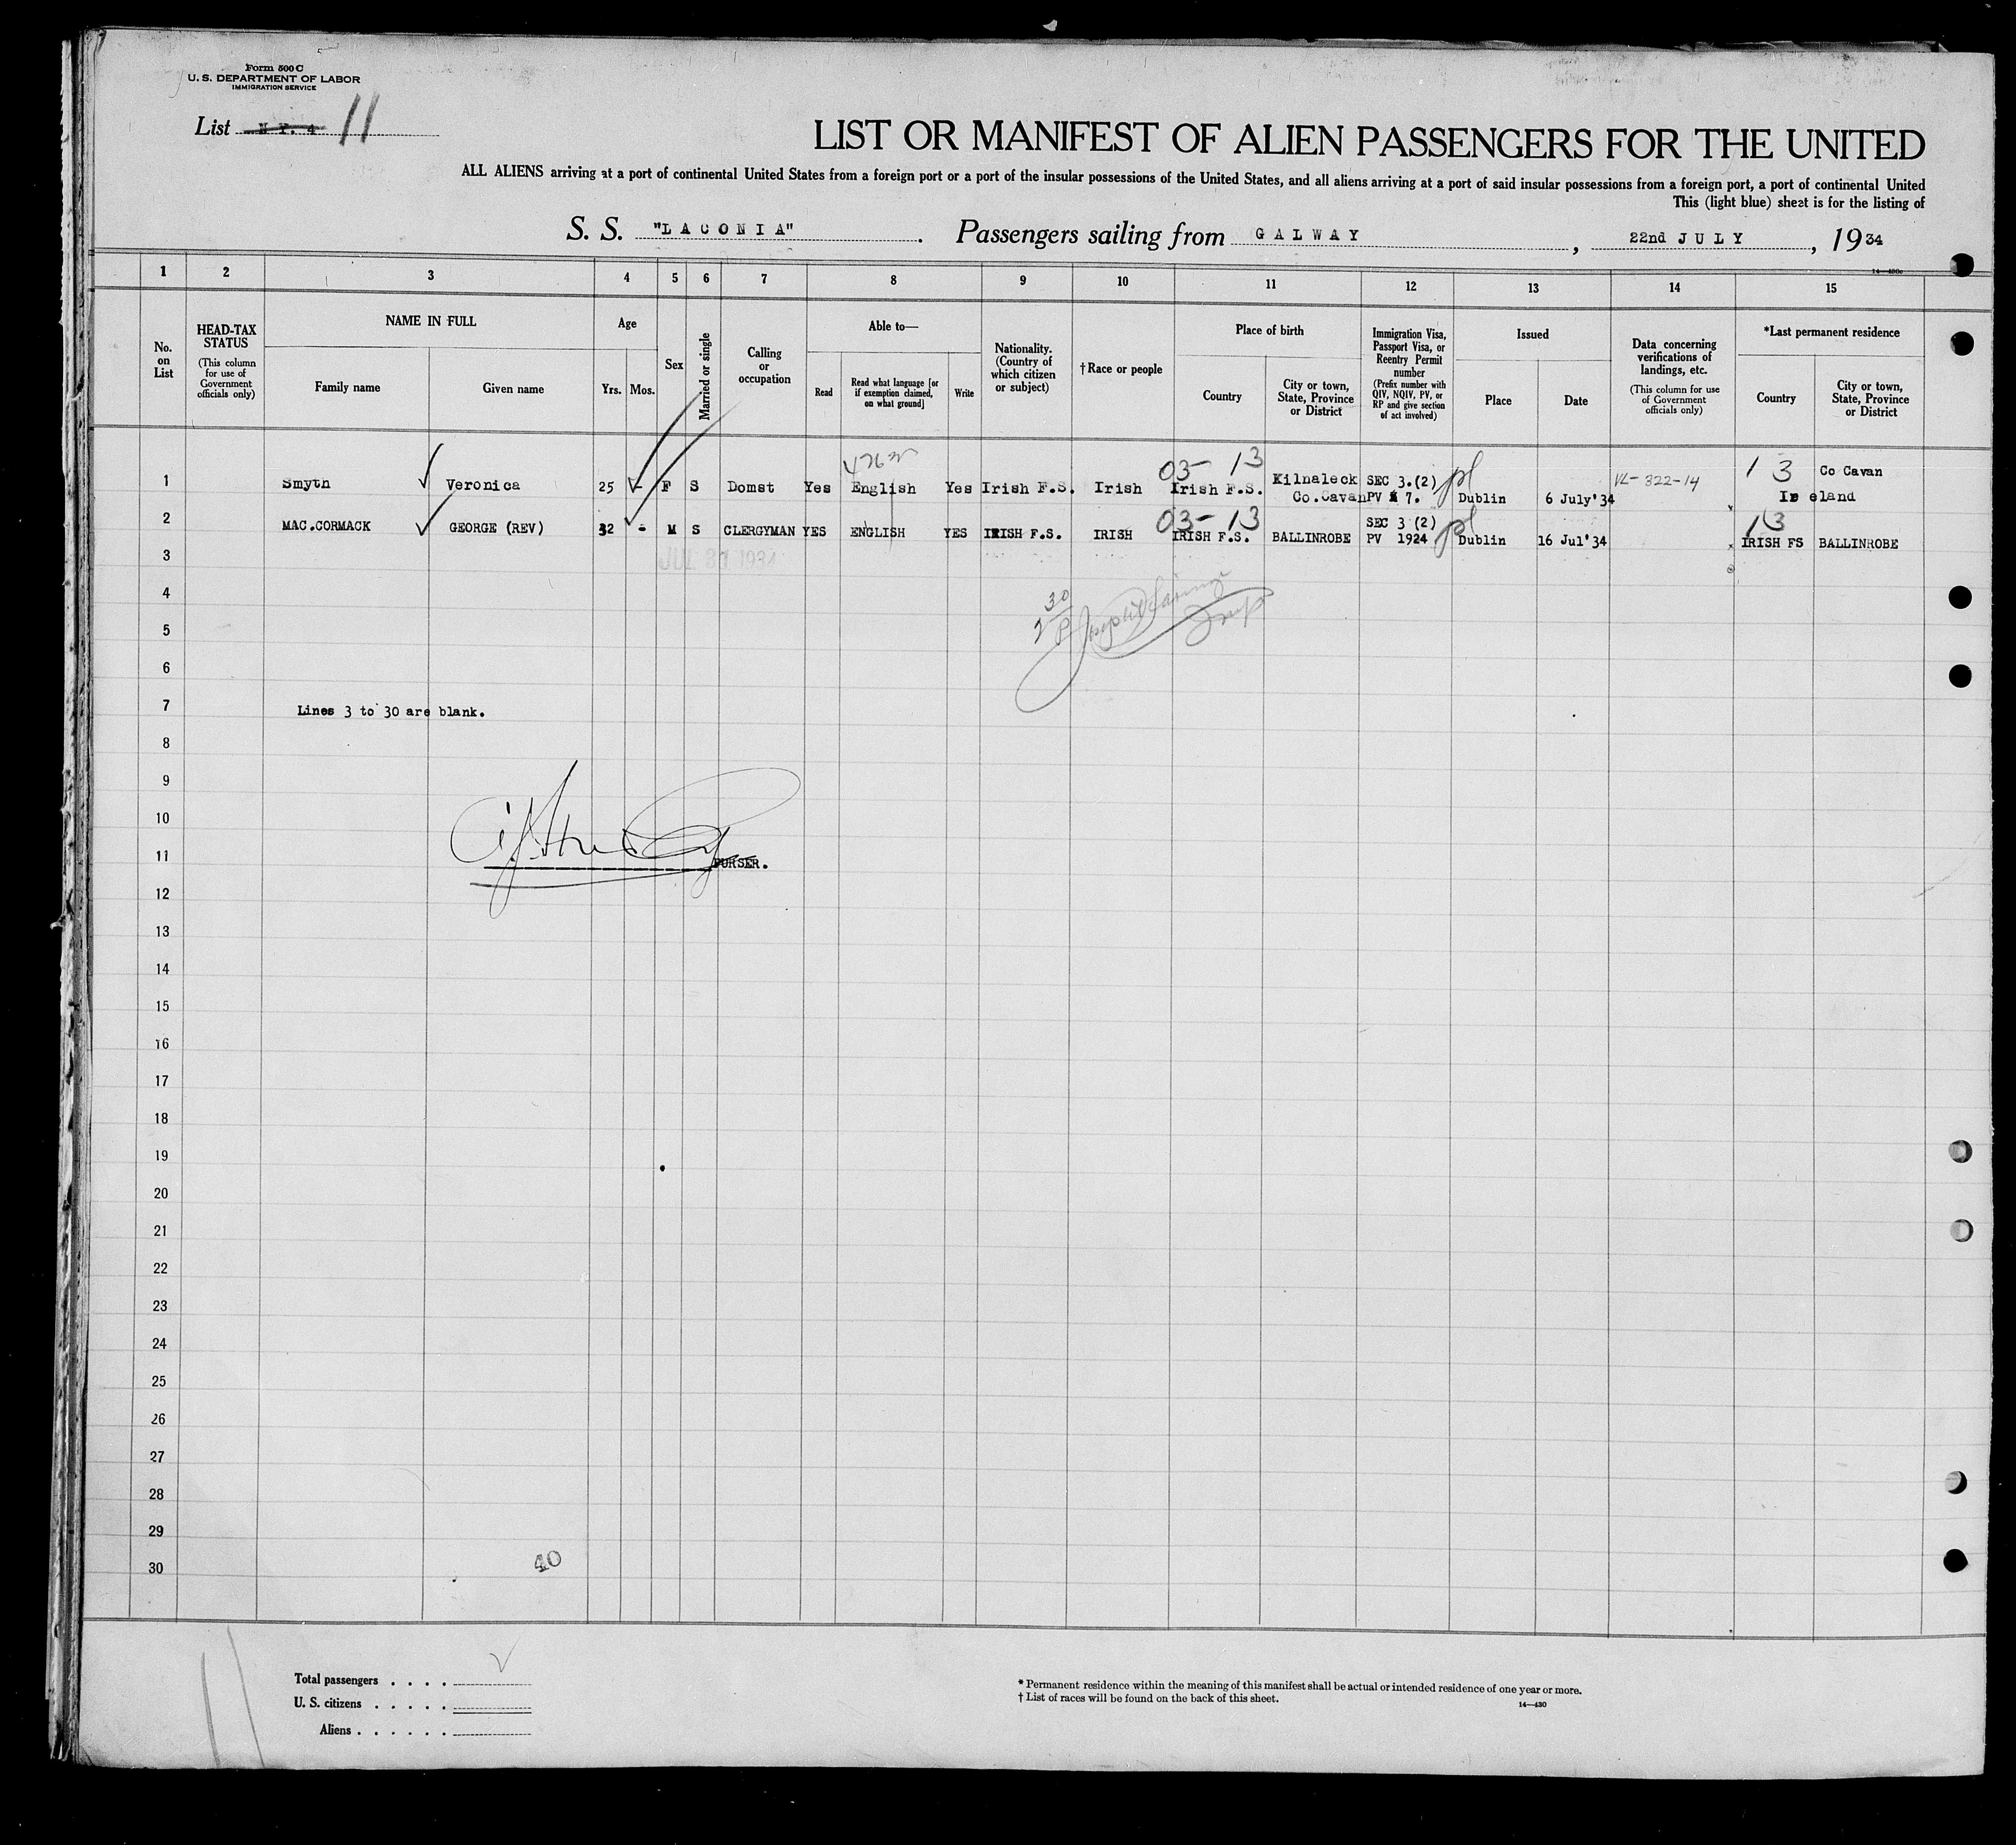 Form 500 C
U. S. DEPARTMENT OF LABOR
IMMIGRATION SERVICE
List N Y. 4 11
LIST OR MANIFEST OF ALIEN PASSENGERS FOR THE UNITED
ALL ALIENS arriving at a port of continental United States from a foreign port or a port of the insular possessions of the United States, and all aliens arriving at a port of said insular possessions from a foreign port, a port of continental United
This (light blue) sheet is for the listing of
S. S. "LACONIA". Passengers sailing from GALWAY, 22nd JULY, 1934
14—430c
1 2 3 4 5 6 7 8 9 10 11 12 13 14 15
No. on List
HEAD-TAX STATUS (This column for use of Government officials only)
NAME IN FULL
Family name
Given name
Age
Yrs.
Mos.
Sex
Married or single
Calling or occupation
Able to—
Read
Read what language [or if exemption claimed, on what ground]
Write
Nationality. (Country of which citizen or subject)
†Race or people
Place of birth
Country
City or town, State, Province or District
Immigration Visa, Passport Visa, or Reentry Permit number (Prefix number with QIV, NQIV, PV, or RP and give section of act involved)
Issued
Place
Date
Data concerning verifications of landings, etc. (This column for use of Government officials only)
*Last permanent residence
Country
City or town, State, Province or District
03- 13
1 Smyth Veronica 25 - F S Domst Yes English Yes Irish F.S. Irish Irish F.S. Kilnaleck Co.Cavan SEC 3.(2) PV 7. Dublin 6 July'34 VL-322-14 13 Co Cavan Ireland
03- 13
2 MAC.CORMACK GEORGE (REV) 32 - M S CLERGYMAN YES ENGLISH YES IRISH F.S. IRISH IRISH F.S. BALLINROBE SEC 3 (2) PV 1924 Dublin 16 Jul'34 13 IRISH FS BALLINROBE
3 JUL 30 1934
4
5
6
7 Lines 3 to 30 are blank.
8
9
10
11 PURSER.
12
13
14
15
16
17
18
19
20
21
22
23
24
25
26
27
28
29
30
40
Total passengers . . . .
U. S. citizens . . . . .
Aliens . . . . . .
* Permanent residence within the meaning of this manifest shall be actual or intended residence of one year or more.
† List of races will be found on the back of this sheet.
14—430